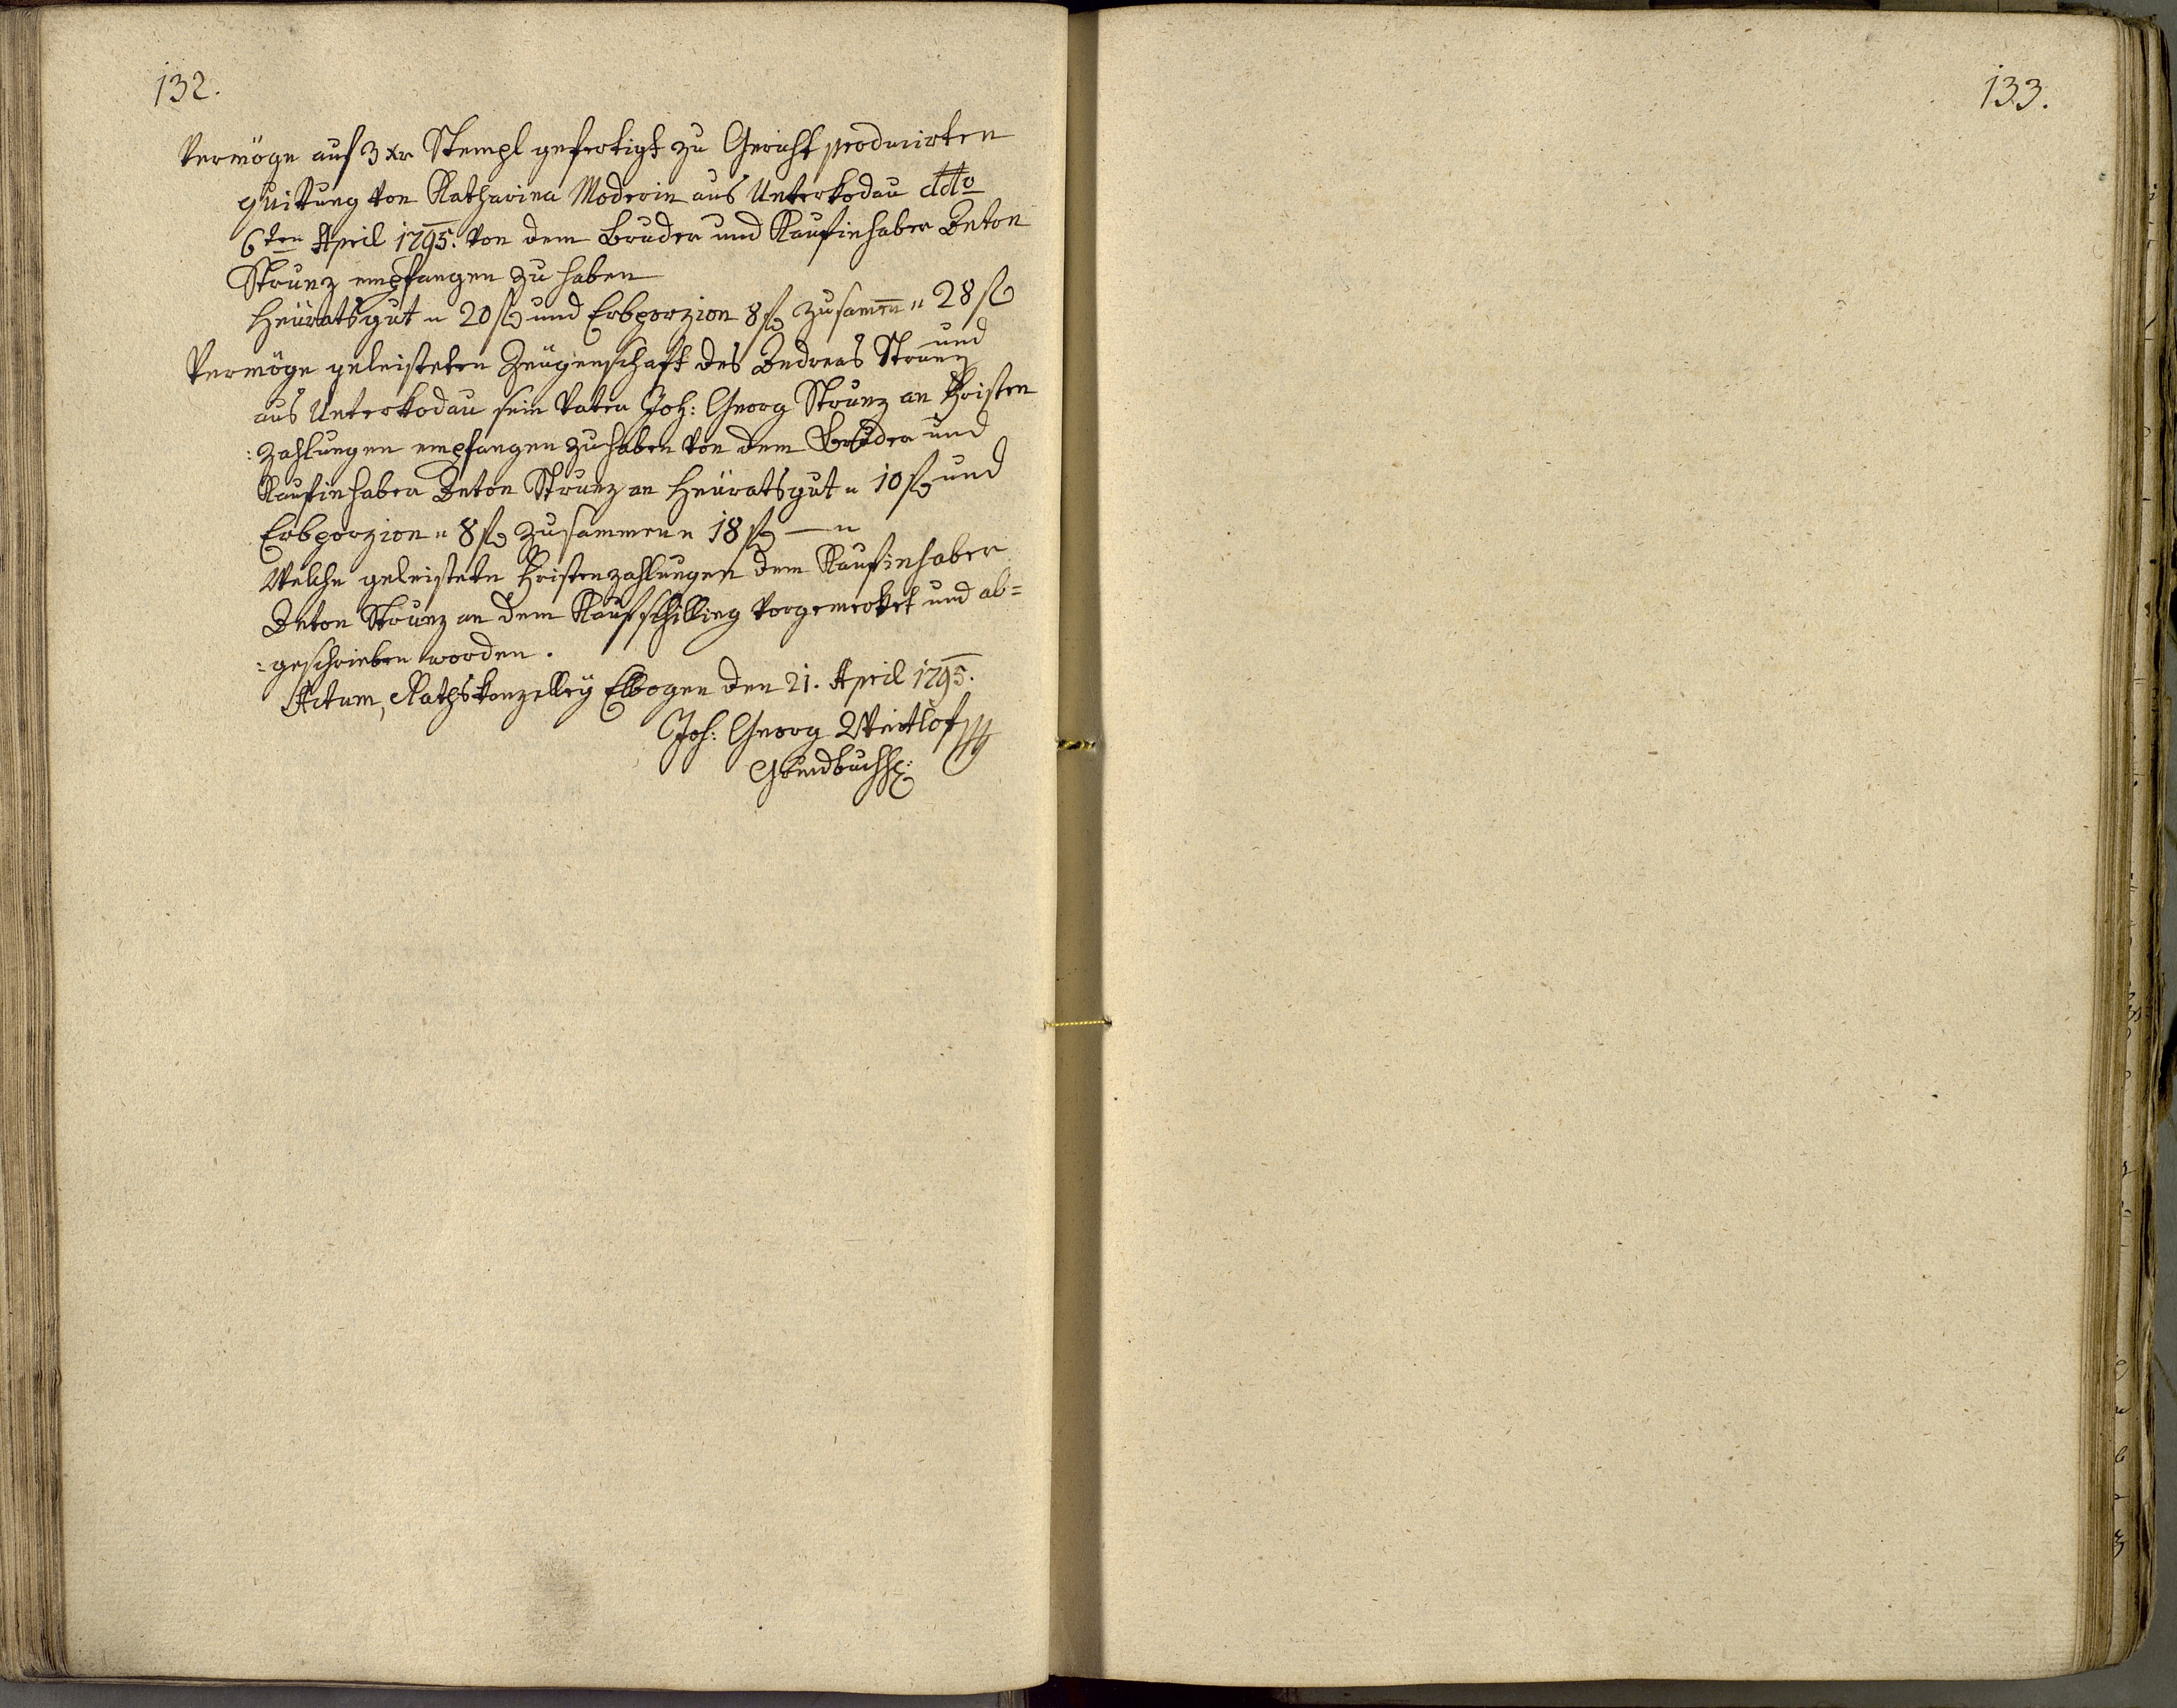 132.
Vermöge auf 3 xr Stempl gefertigt zu Gericht producirten
quittung von Katharina Moderin aus Unterkodau ddto
6ten April 1795. von dem Bruder und Kaufinhaber Anton
Strunz empfangen zu haben
Heüratsgut " 20 f und Erbporzion 8 f zusamen " 28 f
und
Vermöge geleisteten Zeügenschaft des Andreas Strunz
aus Unterkodau sein Vater Joh: Georg Strunz an Fristen
:zahlungen empfangen zu haben von dem Bruder und
Kaufinhaber Anton Strunz an Heüratsgut " 10 f und
Erbporzion " 8 f zusammen " 18 f — "
Welche geleistete Fristenzahlungen dem Kaufinhaber
Anton Strunz an dem Kaufschilling vorgemerket und ab=
:geschrieben worden.
Actum, Rathskanzelley Elbogen den 21. April 1795.
Joh: Georg
Grundbuchh:
133.